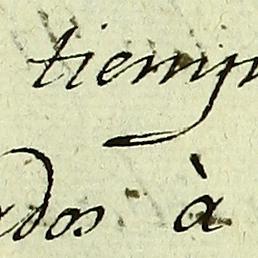 tiemp
ados à